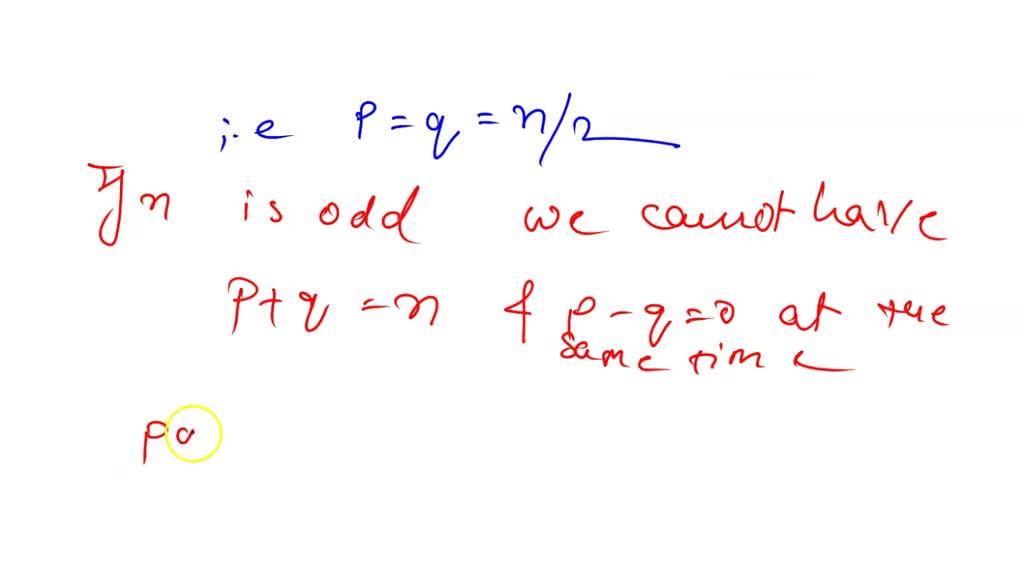 i.e p = q = n/2
If n is odd we cannot have
p + q = n & p - q = 0 at the
same time
pa